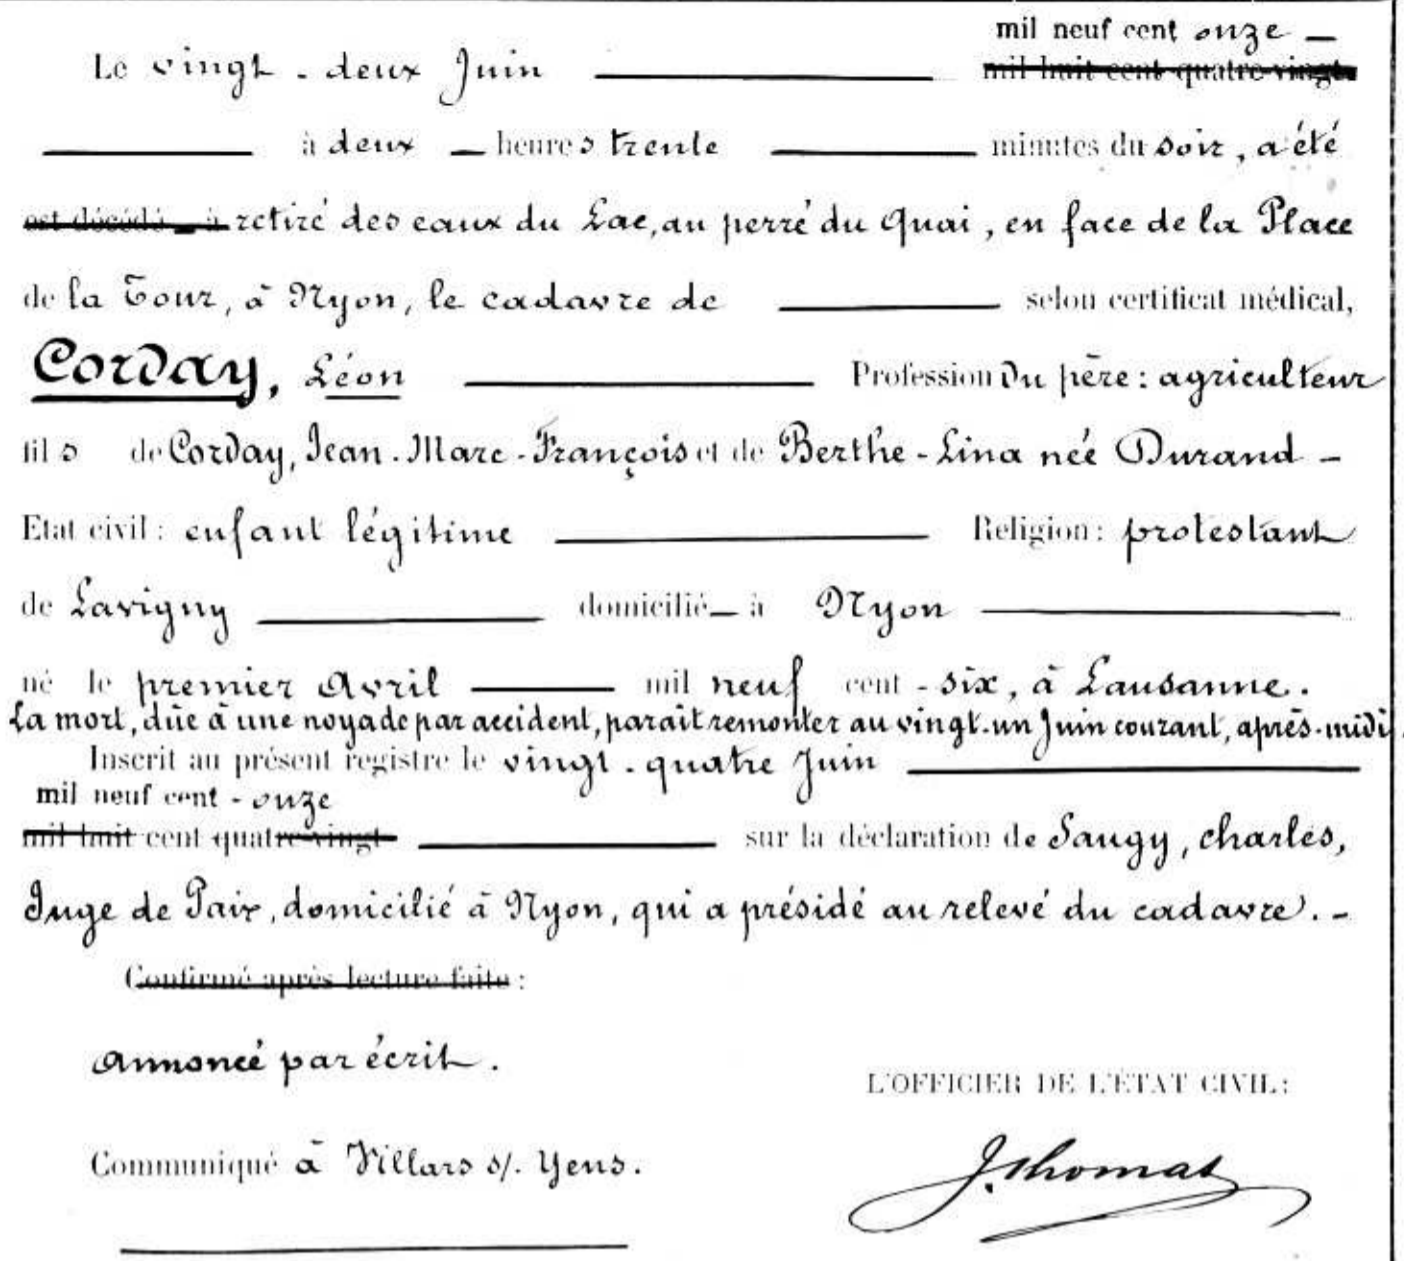 mil neuf cent onze —
Le vingt-deux Juin — mil huit cent quatre-vingt
— à deux — heures trente — minutes du soir, a été
est décédé — à retiré des eaux du Lac, au perré du Quai, en face de la Place
de la Tour, à Nyon, le cadavre de — selon certificat médical,
Corday, Léon — Profession du père : agriculteur
fils de Corday, Jean-Marc-François et de Berthe-Lina née Durand —
Etat civil : enfant légitime — Religion : protestant
de Lavigny — domicilié — à Nyon —
né le premier Avril — mil neuf cent-six, à Lausanne.
La mort, dûe à une noyade par accident, paraît remonter au vingt-un Juin courant, après-midi.
Inscrit au présent registre le vingt-quatre Juin —
mil neuf cent-onze
mil huit cent quatre-vingt — sur la déclaration de Saugy, Charles,
Juge de Paix, domicilié à Nyon, qui a présidé au relevé du cadavre. —
Confirmé après lecture faite :
Annoncé par écrit.
L'OFFICIER DE L'ÉTAT CIVIL :
Communiqué à Villars s/. Yens.
J. Thomas